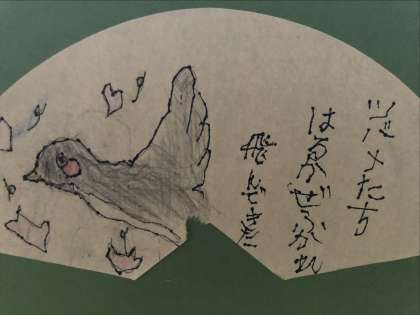 ツバメたち
はるかぜふかれ
飛んできた